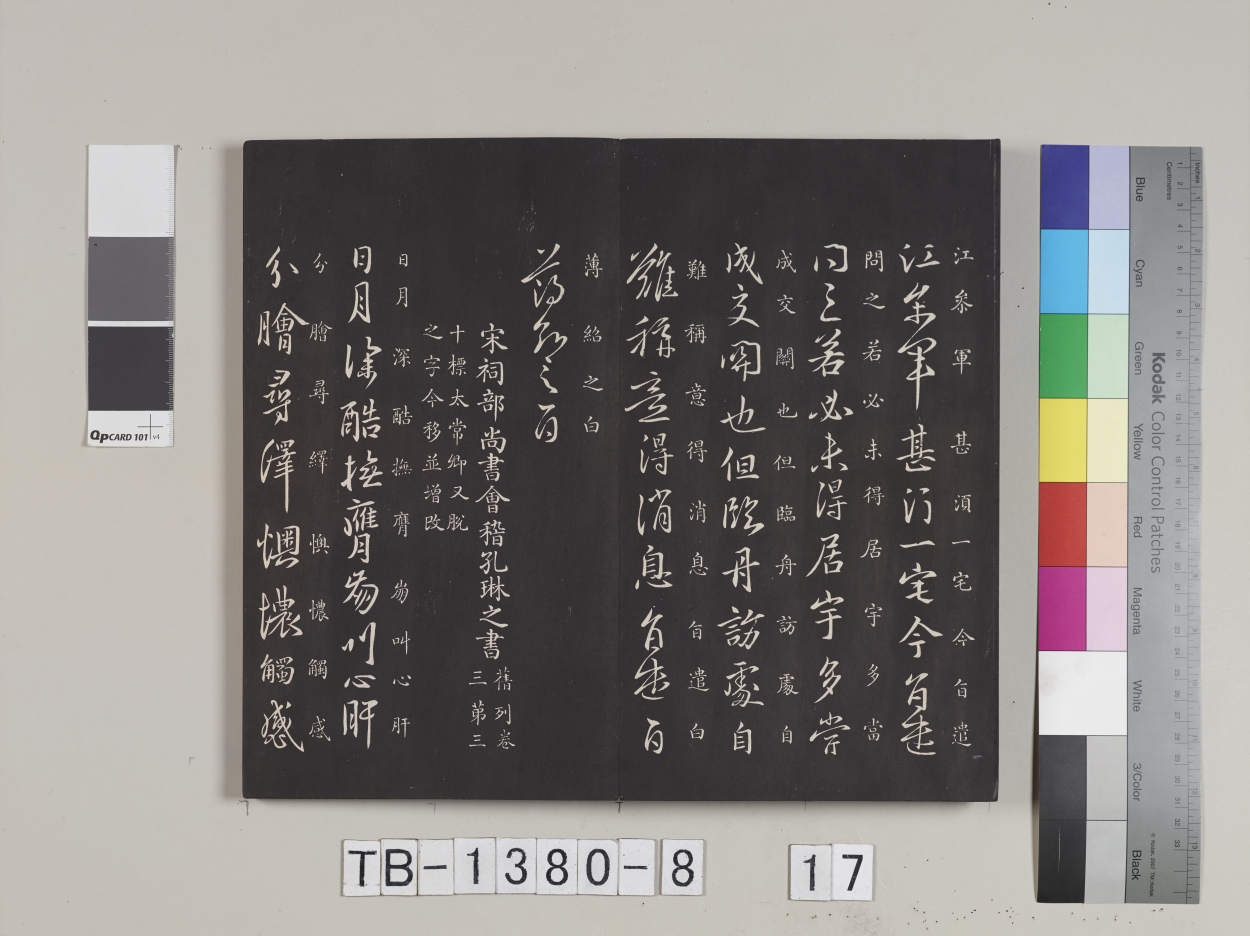 江參軍甚須一宅今自遣
江參軍甚須一宅今自遣
問之若必未得居宇多當
問之若必未得居宇多當
成交關也但臨舟訪處自
成交關也但臨舟訪處自
難稱意得消息自遣白
難稱意得消息自遣白
薄紹之白
薄紹之白
宋祠部尚書會稽孔琳之書
舊列卷
三第三
十標太常卿又脫
之字今移並增改
日月深酷撫膺崩叫心肝
日月深酷撫膺崩叫心肝
分膾尋繹懊憹觸感
分膾尋繹懊憹觸感
QPCARD 101 v4
Kodak Color Control Patches
Inches
Centimetres
Blue
Cyan
Green
Yellow
Red
Magenta
White
3/Color
Black
TB-1380-8
17